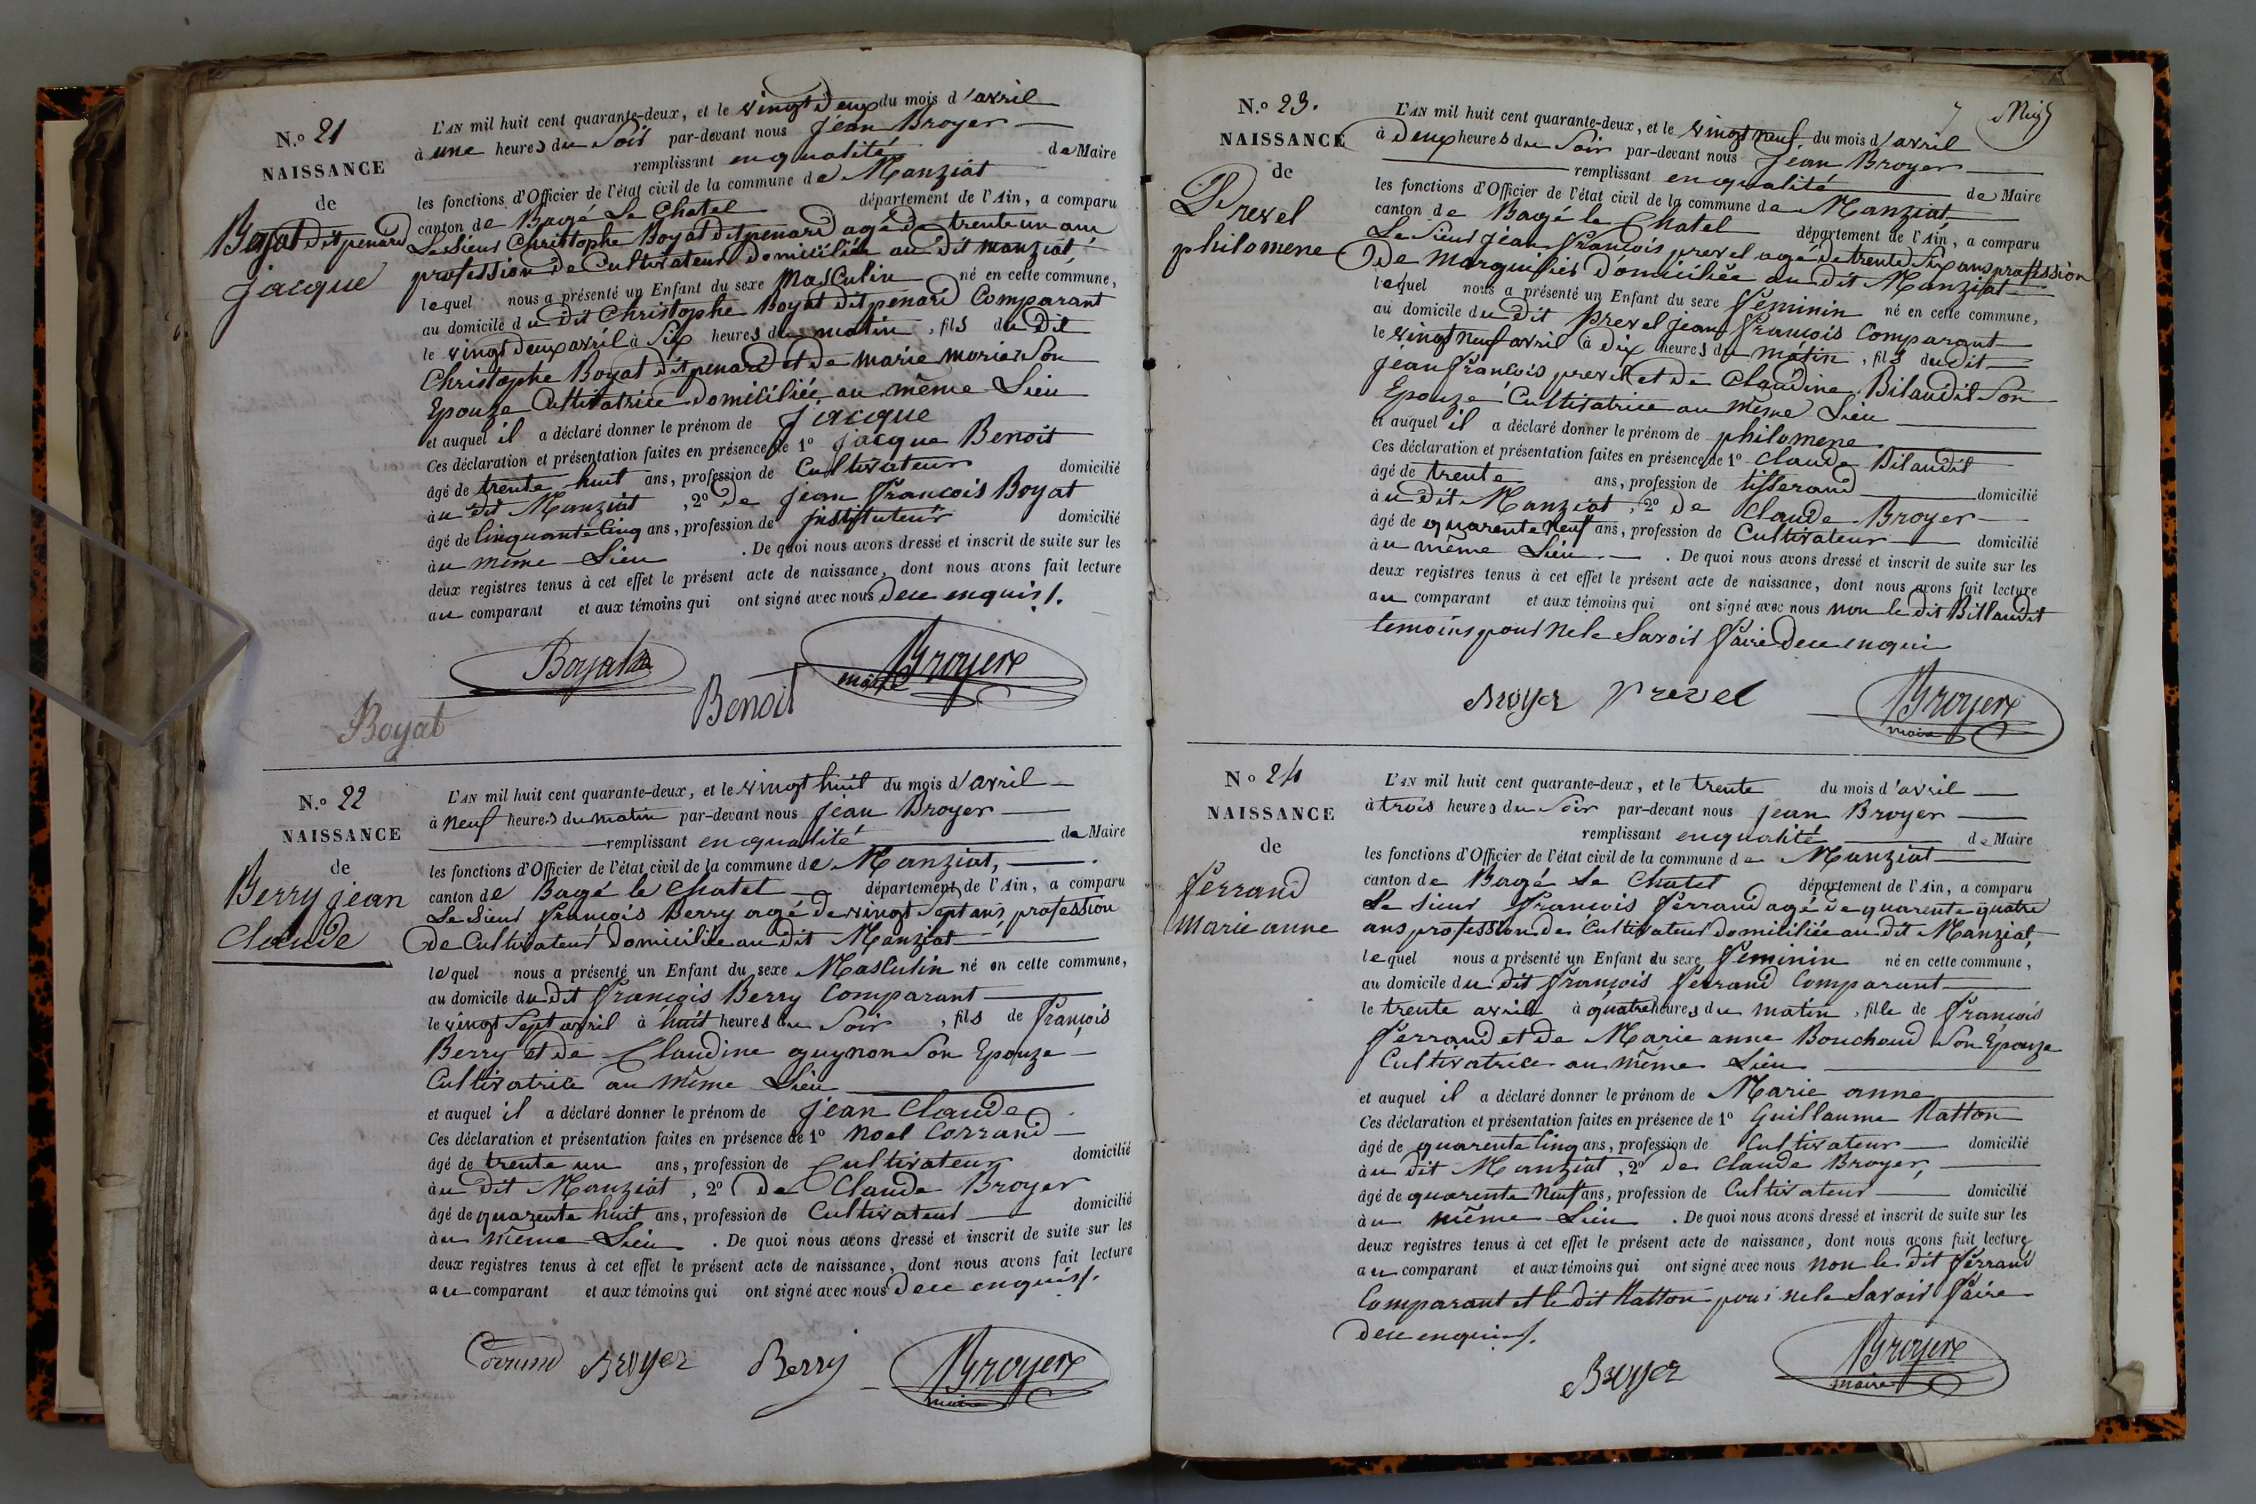 N.° 21
NAISSANCE
de
Boyat dit penard
jacque
L'AN mil huit cent quarante-deux, et le vingt deux du mois d'avril
à une heures du Soir par-devant nous jean Broyer
remplissant en qualité de Maire
les fonctions d'Officier de l'état civil de la commune de Manziat
canton de Bagé Le Chatel département de l'Ain, a comparu
Le Sieur Christophe Boyat dit penard agé de trente un ans
profession de Cultivateur domiciliée au dit manziat,
lequel nous a présenté un Enfant du sexe masculin né en cette commune,
au domicile du dit Christophe Boyat dit penard Comparant
le vingt deux avril à Six heures du matin, fils du dit
Christophe Boyat dit penard et de marie morier Son
Epouze Cultivatrice domiciliée au même Lieu
et auquel il a déclaré donner le prénom de jacque
Ces déclaration et présentation faites en présence de 1° jacque Benoit
âgé de trente huit ans, profession de Cultivateur domicilié
au dit Manziat, 2° de jean francois Boyat
âgé de Cinquante Cinq ans, profession de jnstituteur domicilié
au même Lieu. De quoi nous avons dressé et inscrit de suite sur les
deux registres tenus à cet effet le présent acte de naissance, dont nous avons fait lecture
au comparant et aux témoins qui ont signé avec nous de ce enquis.
Boyat Broyer
maire
Boyat Benoit
N.° 22
NAISSANCE
de
Berry jean
Claude
L'AN mil huit cent quarante-deux, et le vingt huit du mois d'avril
à neuf heures du matin par-devant nous jean Broyer
remplissant en qualité de Maire
les fonctions d'Officier de l'état civil de la commune de Manziat,
canton de Bagé le Chatel département de l'Ain, a comparu
Le Sieur françois Berry agé de vingt Sept ans, profession
de Cultivateur domiciliée au dit Manziat
lequel nous a présenté un Enfant du sexe Masculin né en cette commune,
au domicile du dit françois Berry Comparant
le vingt Sept avril à huit heures du Soir, fils de françois
Berry et de Claudine guynon Son Epouze
Cultivatrice au même Lieu
et auquel il a déclaré donner le prénom de jean Claude
Ces déclaration et présentation faites en présence de 1° noel Corrand
âgé de trente un ans, profession de Cultivateur domicilié
au dit Manziat, 2° de Claude Broyer
âgé de quarente huit ans, profession de Cultivateur domicilié
au même Lieu. De quoi nous avons dressé et inscrit de suite sur les
deux registres tenus à cet effet le présent acte de naissance, dont nous avons fait lecture
au comparant et aux témoins qui ont signé avec nous de ce enquis.
Corrand Broyer Berry Broyer
maire
N.° 23.
NAISSANCE
de
Prevel
philomene
L'AN mil huit cent quarante-deux, et le vingt neuf du mois d'avril
à deux heures du Soir par-devant nous jean Broyer
remplissant en qualité de Maire
les fonctions d'Officier de l'état civil de la commune de Manziat,
canton de Bagé le Chatel département de l'Ain, a comparu
Le Sieur jean françois prevel agé de trente Six ans profession
de Marguillier domiciliée au dit Manziat
lequel nous a présenté un Enfant du sexe féminin né en cette commune,
au domicile du dit prevel jean françois Comparant
le vingt neuf avril à dix heures du matin, fils du dit
jean francois prevel et de Claudine Bilaudit Son
Epouze Cultivatrice au même Lieu
et auquel il a déclaré donner le prénom de philomene
Ces déclaration et présentation faites en présence de 1° Claude Bilaudit
âgé de trente ans, profession de tisserand domicilié
au dit Manziat, 2° de Claude Broyer
âgé de quarente neuf ans, profession de Cultivateur domicilié
au même Lieu. De quoi nous avons dressé et inscrit de suite sur les
deux registres tenus à cet effet le présent acte de naissance, dont nous avons fait lecture
au comparant et aux témoins qui ont signé avec nous non le dit Billaudit
temoins pour ne le Savoir faire de ce enqui
Broyer Prevel Broyer
maire
N° 24
NAISSANCE
de
ferrand
marie anne
L'AN mil huit cent quarante-deux, et le trente du mois d'avril
à trois heures du Soir par-devant nous jean Broyer
remplissant en qualité de Maire
les fonctions d'Officier de l'état civil de la commune de Manziat
canton de Bagé Le Chatel département de l'Ain, a comparu
Le Sieur francois ferrand agé de quarente quatre
ans profession de Cultivateur domiciliée au dit Manziat,
lequel nous a présenté un Enfant du sexe féminin né en cette commune,
au domicile du dit françois ferrand Comparant
le trente avril à quatre heures du matin, fille de françois
ferrand et de Marie anne Bouchoud Son Epouze
Cultivatrice au même Lieu
et auquel il a déclaré donner le prénom de Marie anne
Ces déclaration et présentation faites en présence de 1° Guillaume Ratton
âgé de quarente Cinq ans, profession de Cultivateur domicilié
au dit Manziat, 2° de Claude Broyer,
âgé de quarente neuf ans, profession de Cultivateur domicilié
au même Lieu. De quoi nous avons dressé et inscrit de suite sur les
deux registres tenus à cet effet le présent acte de naissance, dont nous avons fait lecture
au comparant et aux témoins qui ont signé avec nous non le dit ferrand
Comparant et le dit Ratton pour ne le Savoir faire
de ce enquis.
Broyer Broyer
maire